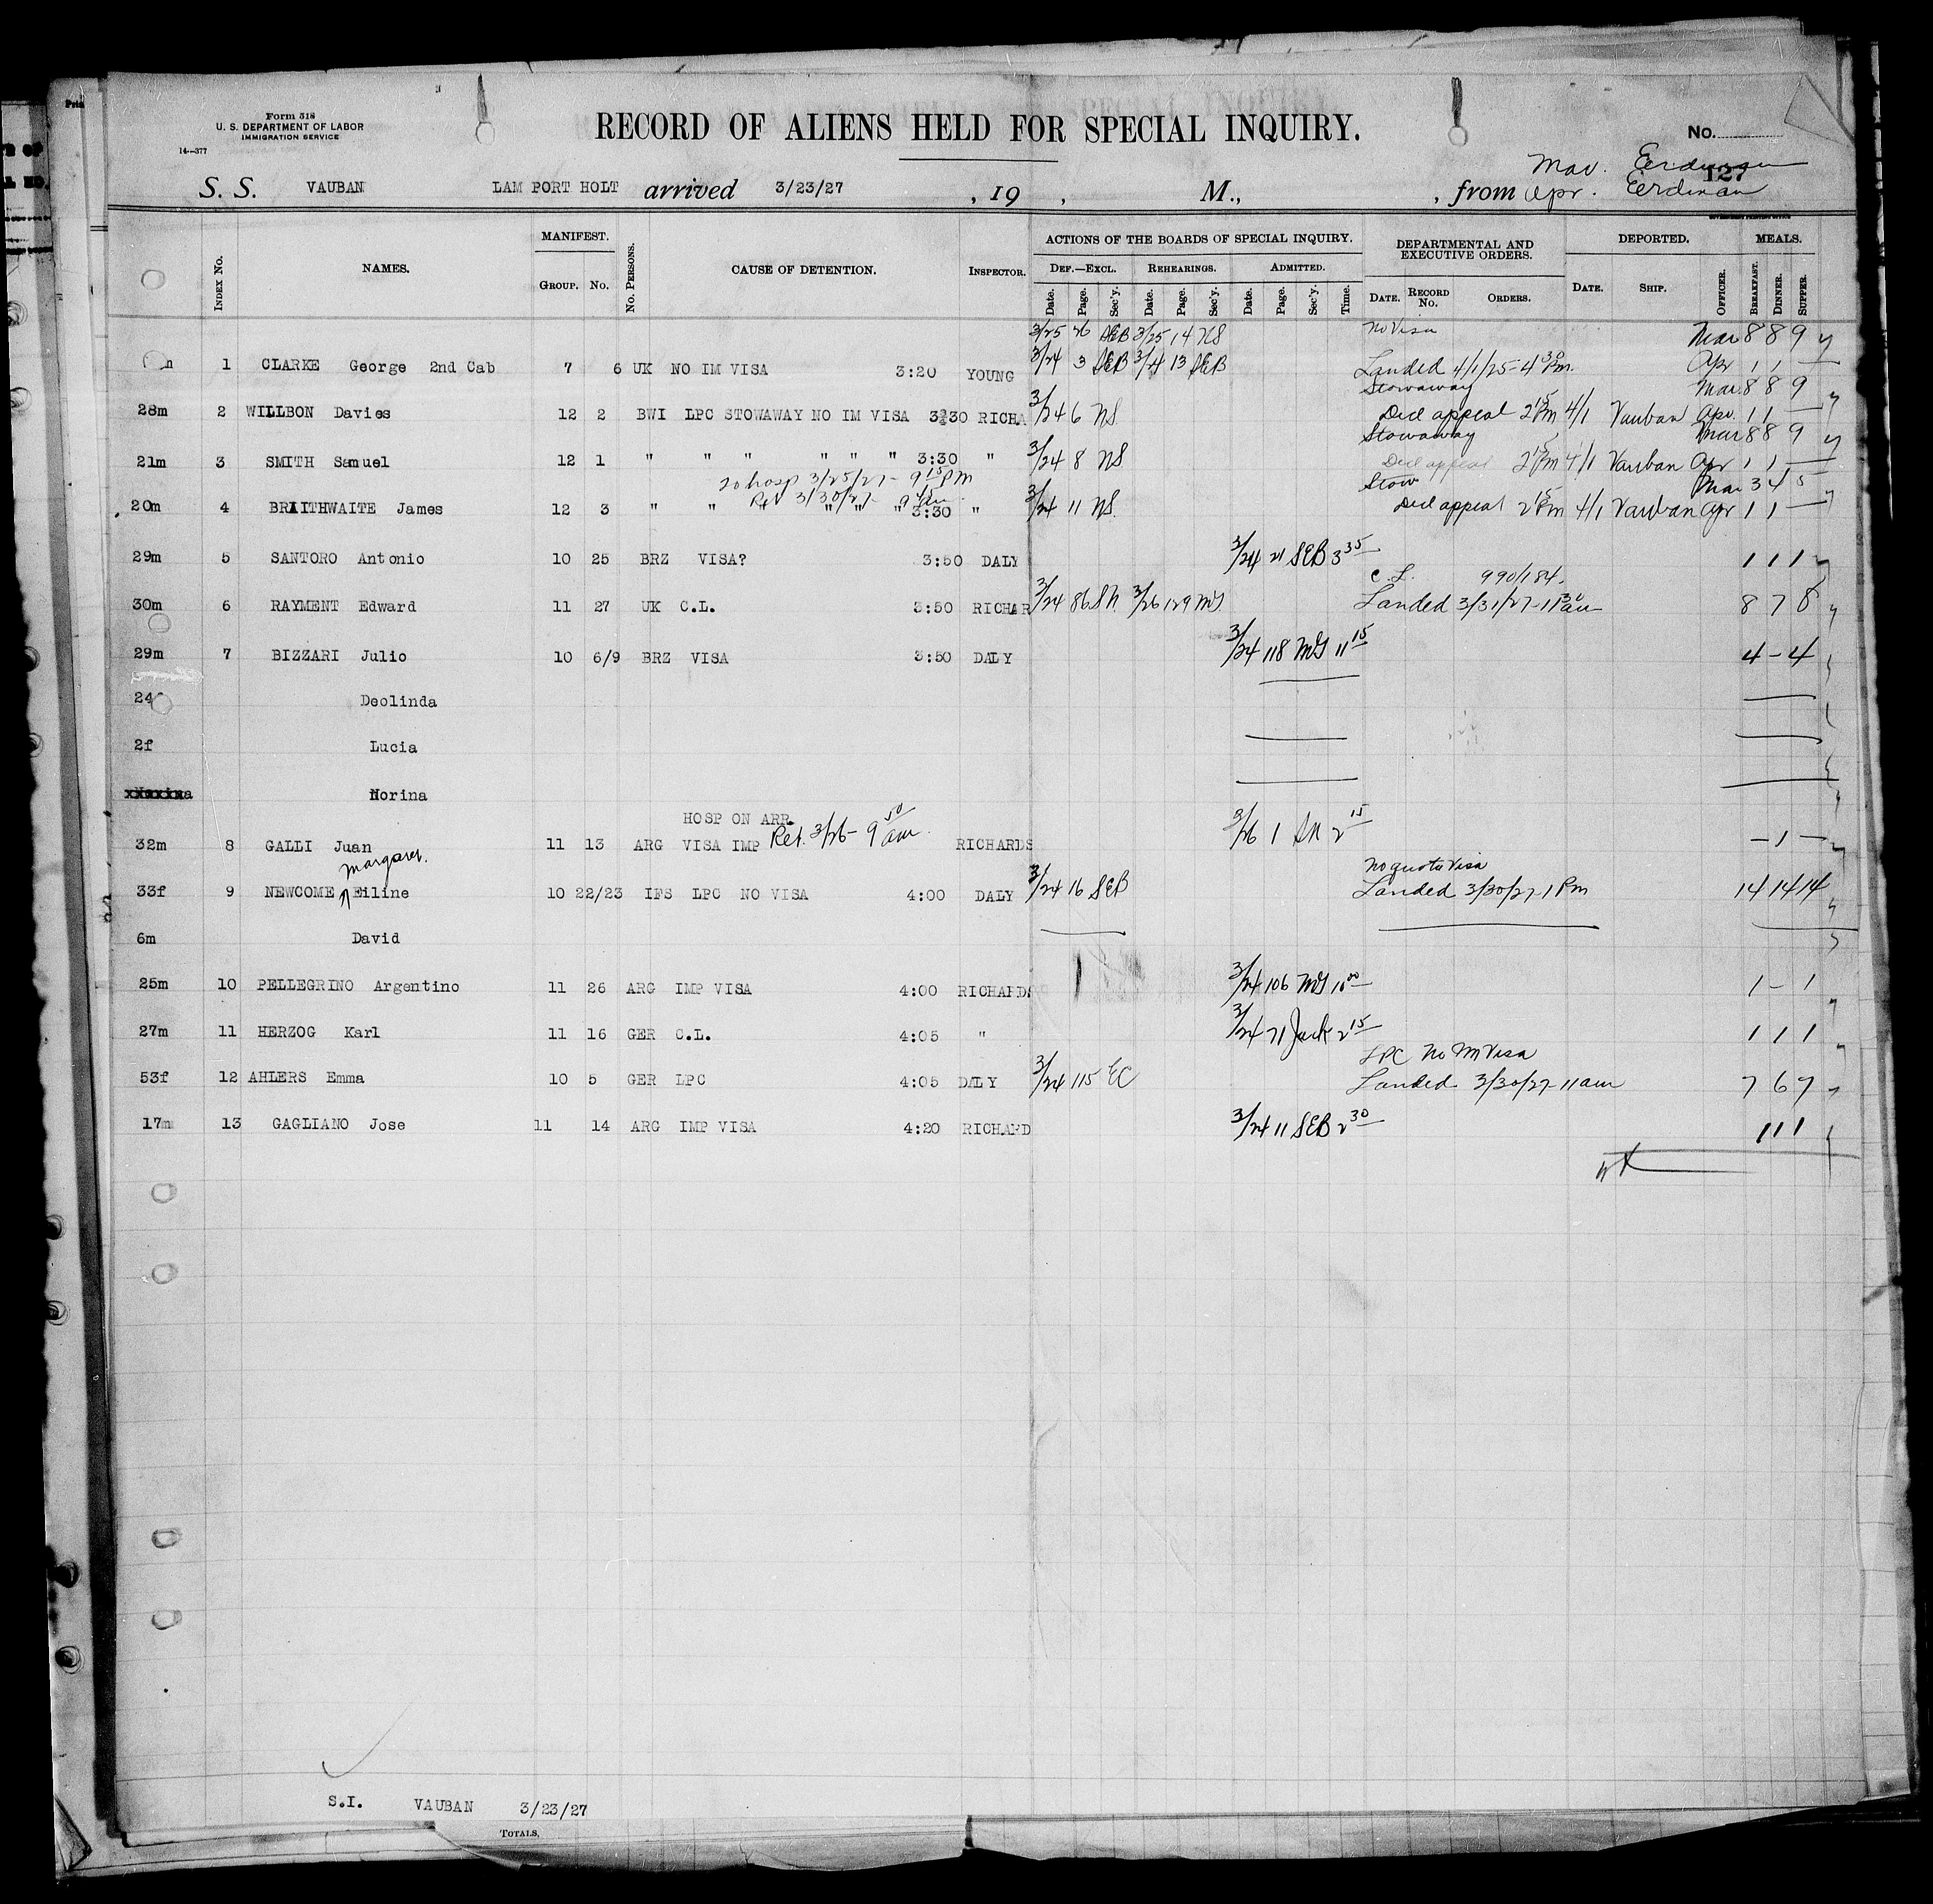 Form 518
U. S. DEPARTMENT OF LABOR
IMMIGRATION SERVICE
14—377
RECORD OF ALIENS HELD FOR SPECIAL INQUIRY.
No.
127
Mar. Eerdman
S. S. VAUBAN LAM PORT HOLT arrived 3/23/27 , 19 , M., , from Apr. Eerdman
GOVERNMENT PRINTING OFFICE
INDEX No. NAMES. MANIFEST. GROUP. No. No. PERSONS. CAUSE OF DETENTION. INSPECTOR.
ACTIONS OF THE BOARDS OF SPECIAL INQUIRY. DEPARTMENTAL AND EXECUTIVE ORDERS. DEPORTED. MEALS.
DEF.—EXCL. REHEARINGS. ADMITTED.
Date. Page. Sec'y. Date. Page. Sec'y. Date. Page. Sec'y. Time. DATE. RECORD No. ORDERS. DATE. SHIP. OFFICER. BREAKFAST. DINNER. SUPPER.
3/25 76 SEB 3/25 14 NS No Visa Mar 8 8 9
m 1 CLARKE George 2nd Cab 7 6 UK NO IM VISA 3:20 YOUNG 3/24 3 SEB 3/24 13 SEB Landed 4/1/25-4 30 Pm. Apr 1 1 —
Stowaway Mar 8 8 9
28m 2 WILLBON Davies 12 2 BWI LPC STOWAWAY NO IM VISA 3:30 RICHA 3/24 6 NS Decl appeal 2 15 Pm 4/1 Vauban Apr. 1 1 —
Stowaway Mar 8 8 9
21m 3 SMITH Samuel 12 1 " " " " " " 3:30 " 3/24 8 NS Decl appeal 2 15 Pm 4/1 Vauban Apr 1 1 —
To hosp 3/25/27 - 9 15 PM Stow Mar 3 4 5
Ret 3/30/27 - 9 am
20m 4 BRAITHWAITE James 12 3 " " " " " " 3:30 " 3/24 11 NS. Decl appeal 2 15 Pm 4/1 Vauban Apr 1 1 —
29m 5 SANTORO Antonio 10 25 BRZ VISA? 3:50 DALY 3/24 21 SEB 3 35 1 1 1
C.L. 990/184.
30m 6 RAYMENT Edward 11 27 UK C.L. 3:50 RICHAR 3/24 86 SN 3/26 129 MS Landed 3/31/27-11 30 am 8 7 8
29m 7 BIZZARI Julio 10 6/9 BRZ VISA 3:50 DALY 3/24 118 MS 11 15 4 - 4
24 Deolinda
2f Lucia
Norina
HOSP ON ARR.
32m 8 GALLI Juan 11 13 ARG VISA IMP Ret. 3/26 - 9 50 am. RICHARDS 3/26 1 SN 2 15 — 1 —
Margaret. No quota Visa
33f 9 NEWCOME Eiline 10 22/23 IFS LPC NO VISA 4:00 DALY 3/24 16 SEB Landed 3/30/27-1 Pm 14 14 14
6m David
25m 10 PELLEGRINO Argentino 11 26 ARG IMP VISA 4:00 RICHARDS 3/24 106 MS 10 00 1 - 1
27m 11 HERZOG Karl 11 16 GER C.L. 4:05 " 3/24 71 Jack 2 15 1 1 1
LPC No Im Visa
53f 12 AHLERS Emma 10 5 GER LPC 4:05 DALY 3/24 115 EC Landed 3/30/27-11 am 7 6 7
17m 13 GAGLIANO Jose 11 14 ARG IMP VISA 4:20 RICHARD 3/24 11 SEB 2 30 1 1 1
S.I. VAUBAN 3/23/27
TOTALS,